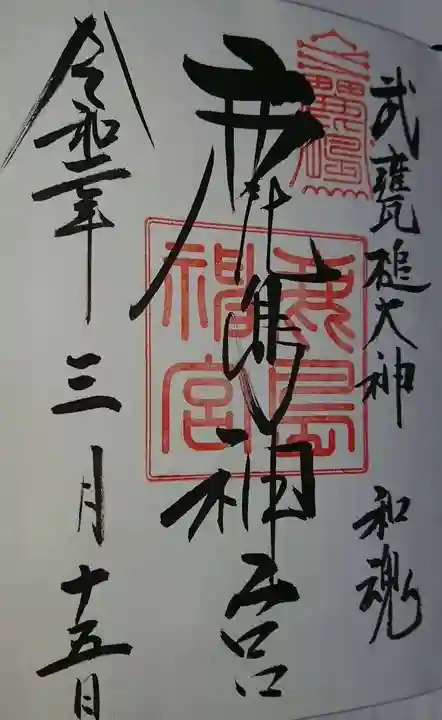 武甕槌大神 和魂
鹿島神宮
鹿島神宮
令和二年三月十五日